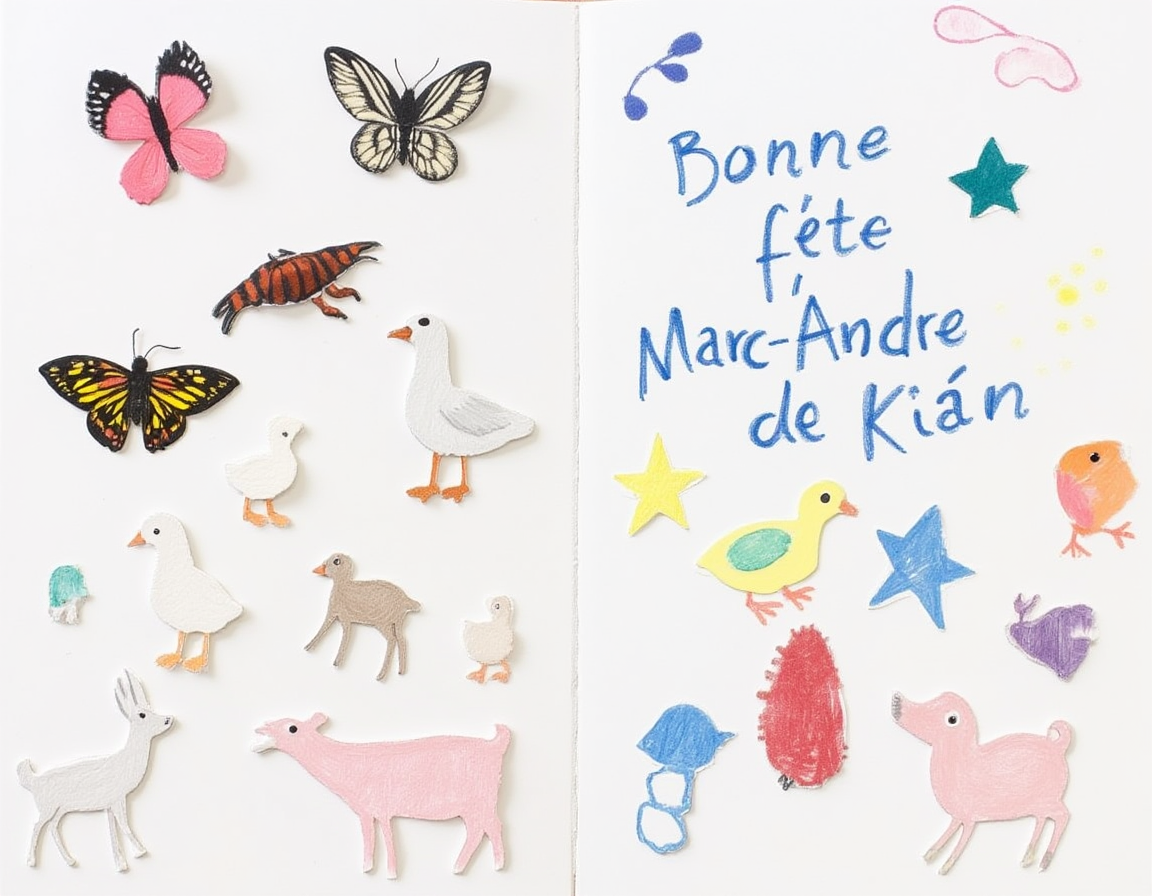 Bonne
féte
Marc-Àndre
de Kián